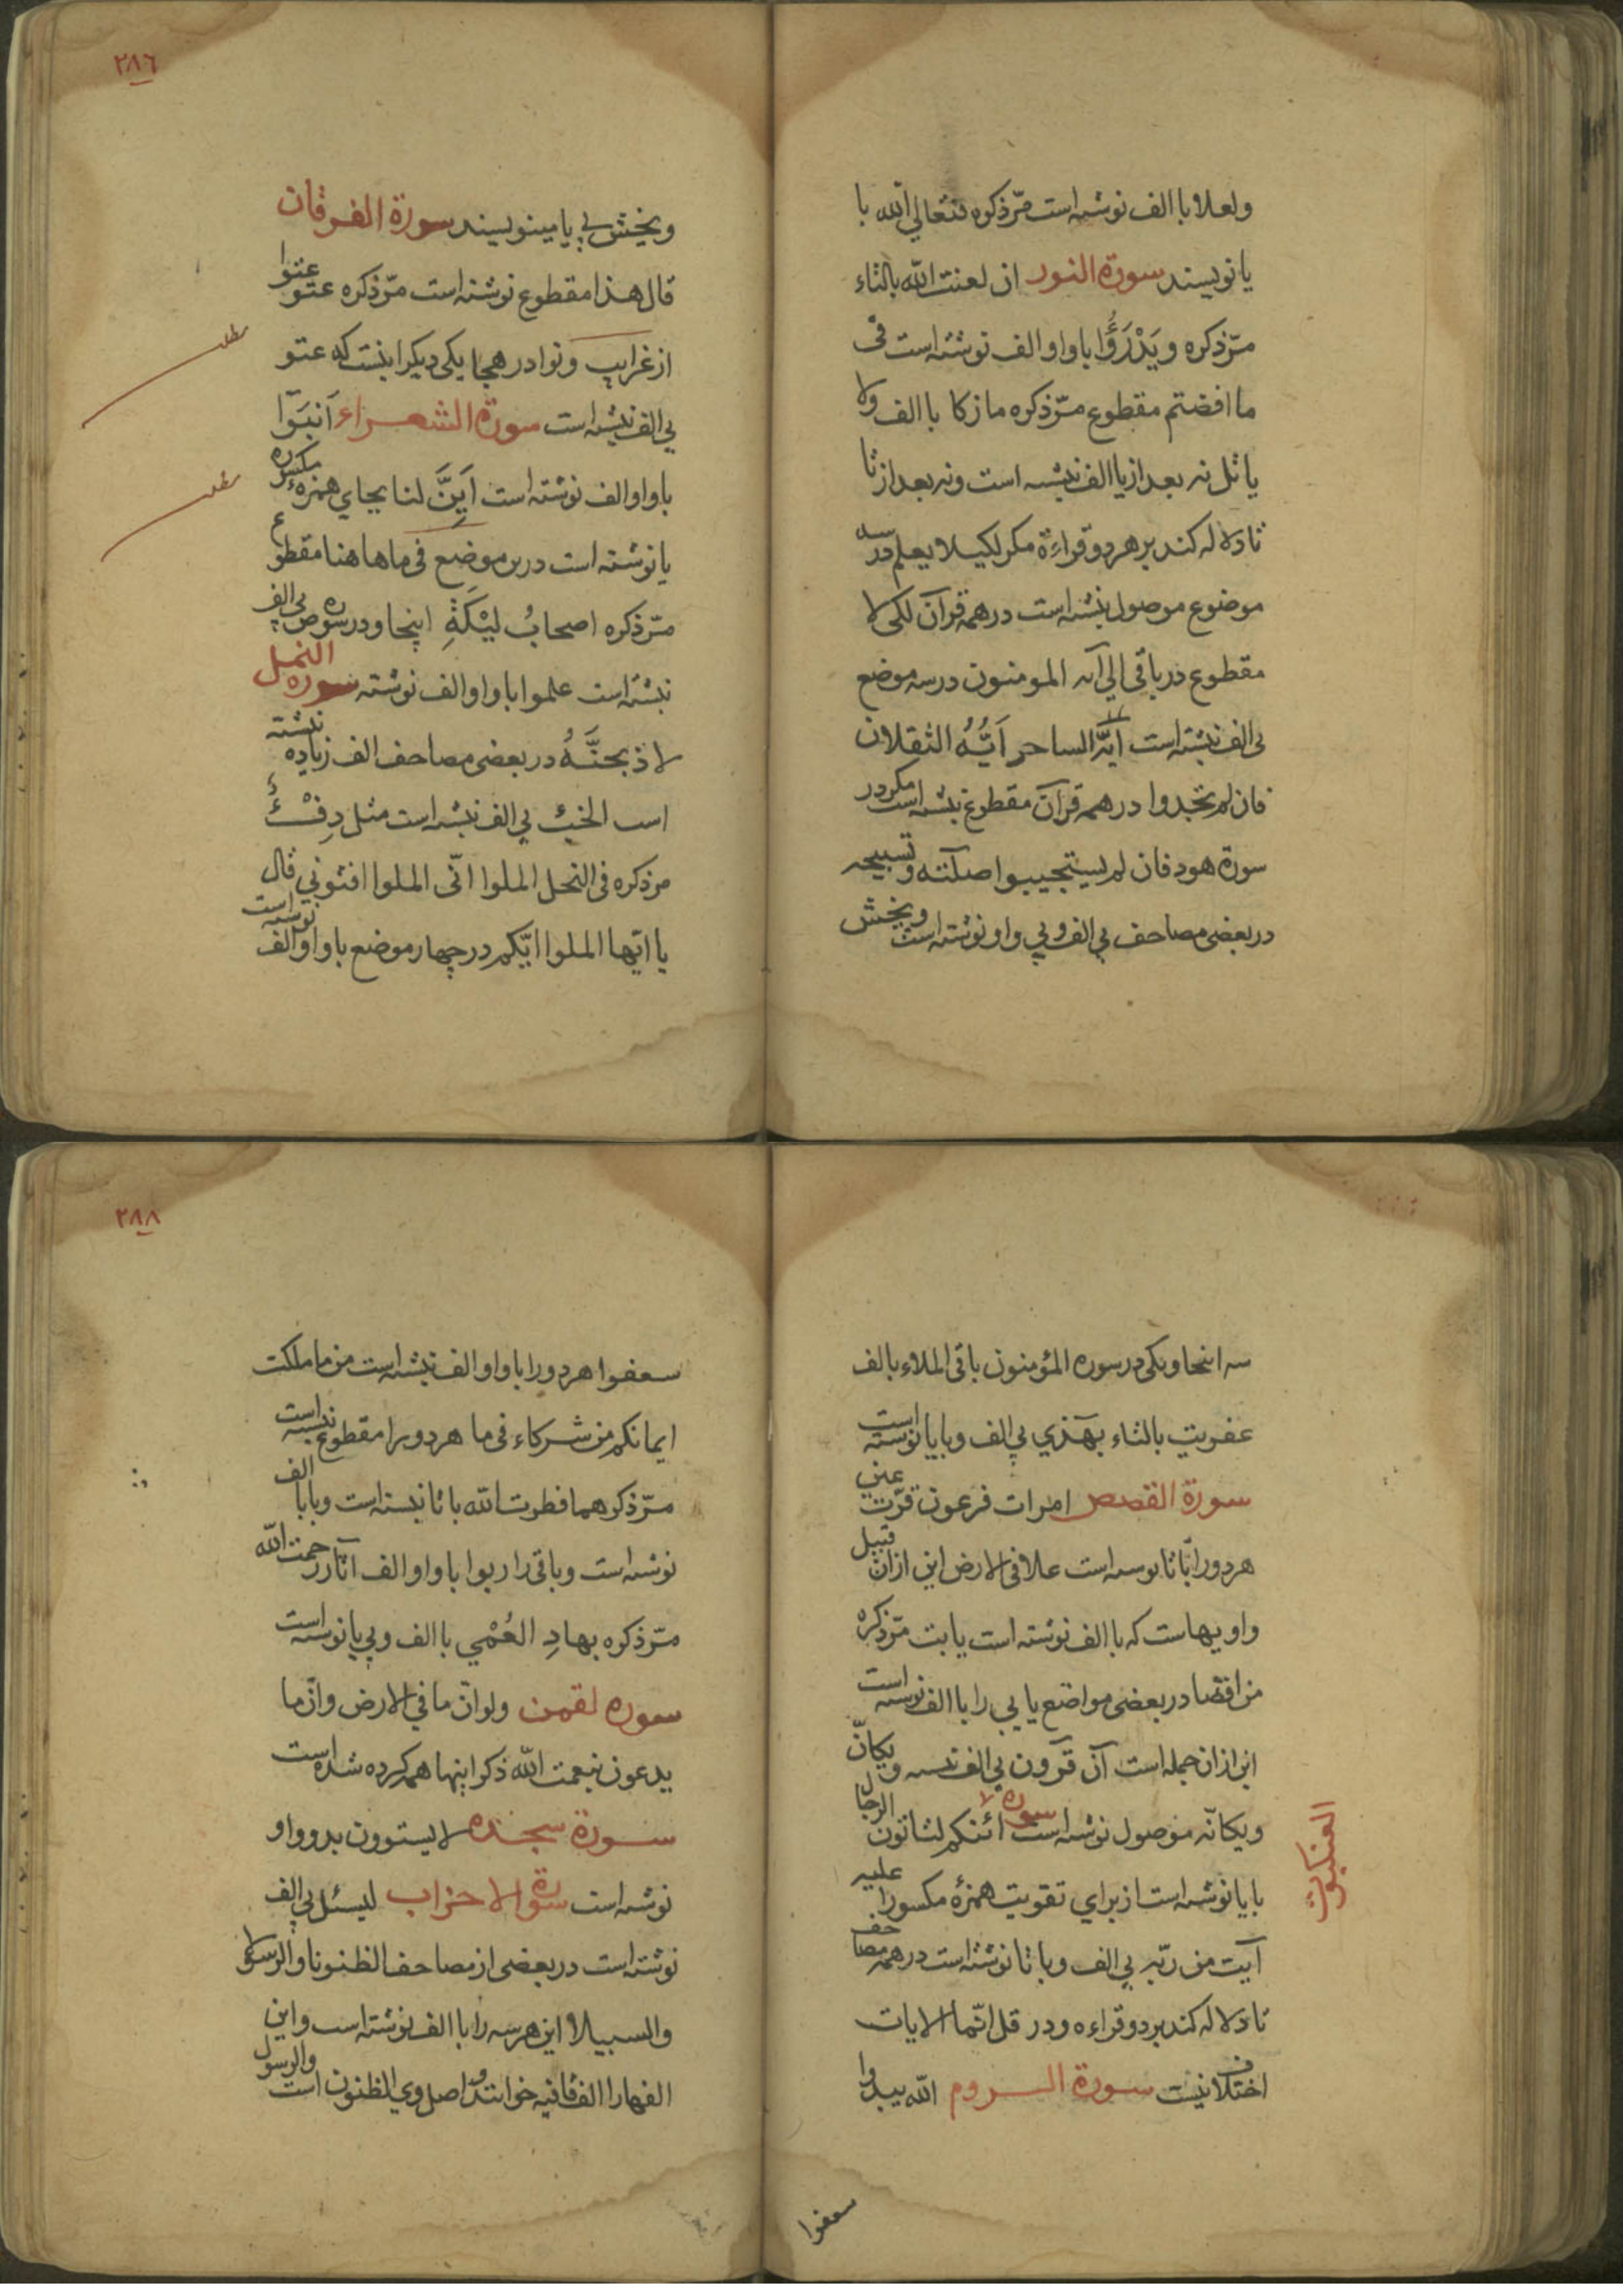 ولعلا با الف نوشته است مرّ ذكره فتعالى الله با
يا نويسند سورة النور ان لعنت الله بالتاء
مرّ ذكره ويَدْرَؤُا باواو الف نوشته است فى
ما افضتم مقطوع مرّ ذكره ما زكا با الف ولا
ياتل نه بعد از يا الف نبشته است ونه بعد از تا
تا دلاله كند بر هر دو قراءة مكر لكيلا يعلم در سه
موضوع موصول نبشته است در همه قرآن لكى لا
مقطوع در باقى الى آيه المومنون در سه موضع
بى الف نبشته است ايّه الساحر اَيُّهُ الثقلان
فان لم تجدوا در همه قرآن مقطوع نبشته است مكر در
سورة هود فان لم يستجيبوا صلآته وتسبيحه
در بعضى مصاحف بى الف وبى واو نوشته است ويخش
٢٨٦
ويخش بى يا مينويسند سورة الفرقان
قال هذا مقطوع نوشته است مرّ ذكره عتو عتوا
از غرايب ونوادر هجا يكى ديكر اينست كه عتو
بى الف نبشته است سورة الشعراء اَنبوا
باواو الف نوشته است اَئِنَّ لنا بجاي همزهٔ مكسوره
يا نوشته است درين موضع فى ما هاهنا مقطوع
مرّ ذكره اصحابُ لْيْكَةِ اينجا ودر سوره ص بى الف
نبشته است علموا باواو الف نوشته سوره النمل
لاذبحنَّهُ در بعضى مصاحف الف زياده نبشته
است الخبء بى الف نبشته است مثل دِفْءٌ
مر ذكره فى النحل الملوا انّى الملوا افتونى قال
يا ايّها الملوا ايّكم در چهار موضع باواو الف نوشته است
سه اينجا ويكى در سوره المؤمنون باقى الملاء بالف
عفريت بالتاء بهٓذي بى الف وبا يا نوشته است
سورة القصص امرات فرعون قرّت عين
هر دورا با تا نوشته است علا فى الارض اين از ان قبيل
واويهاست كه با الف نوشته است يابت مرّ ذكره
من اقصا در بعضى مواضع يايى را با الف نوشته است
اين از ان جمله است آن قرون بى الف نبشته ويكانّ
ويكانّه موصول نوشته است سوره ائنكم لتاتون الرجال
العنكبوت
با يا نوشته است از براي تقويت همزهٔ مكسور عليه
آيت من ربّه بى الف وبا تا نوشته است در همه مصاحف
تا دلاله كند بر دو قراءه ودر قل انّما الايات
اختلاف نيست سورة الروم الله يبدوا
سعفوا
٢٨٨
سعفوا هر دورا باواو الف نبشته است من ما ملكت
ايمانكم من شركاء فى ما هر دورا مقطوع نبشته است
مرّ ذكرهما فطرت الله با تا نبشته است وبا با الف
نوشته است وباقى را ربوا باواو الف آثار رحمت الله
مرّ ذكره بهادِ العُمْي با الف وبى يا نوشته است
سوره لقمن ولو انّ ما في الارض وانّ ما
يدعون بنعمت الله ذكر اينها همه كرده شده است
سورة سجده لا يستوون بدو واو
نوشته است سورة الاحزاب ليسئل بى الف
نوشته است در بعضى از مصاحف الظنونا والرسولا
والسبيلا اين هر سه را با الف نوشته است واين
الفهارا الف قافيه خوانند واصل وي الظنون والرسول است